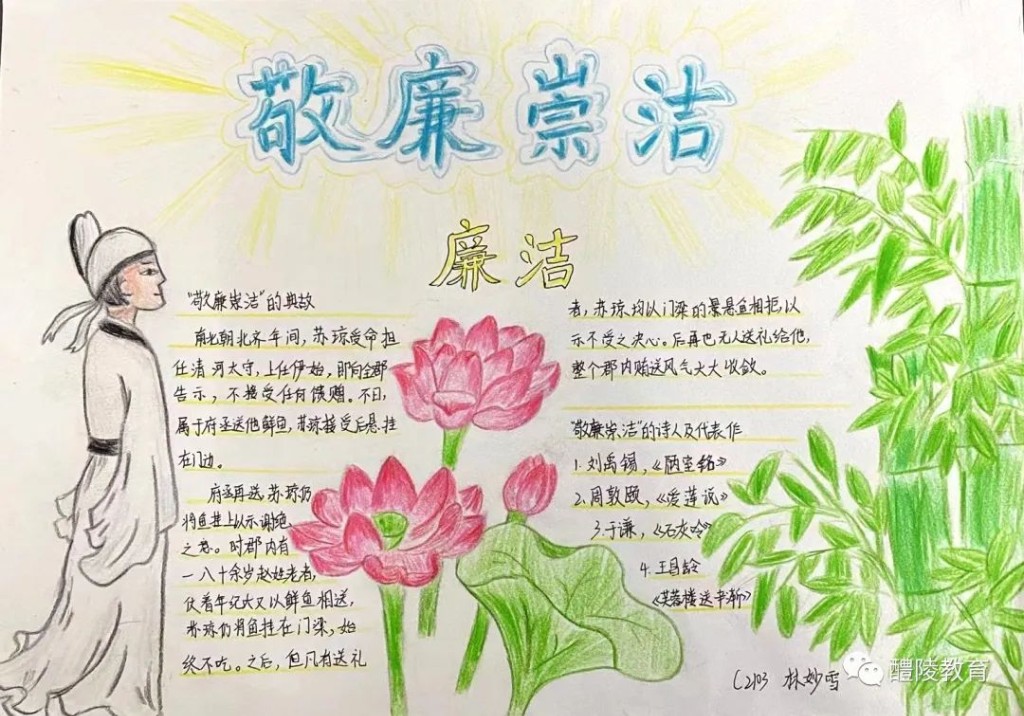 敬廉崇洁
廉洁
"敬廉崇洁"的典故
南北朝北齐年间，苏琼受命担
任清河太守，上任伊始，即向全郡
告示，不接受任何馈赠。不日，
属于府丞送他鲜鱼，苏琼接受后悬挂
在门边。
府丞再送，苏琼仍
将鱼挂上以示谢绝
之意。时郡内有
一八十余岁赵姓老者，
仗着年纪大又以鲜鱼相送，
苏琼仍将鱼挂在门梁，始
终不吃。之后，但凡有送礼
者，苏琼均以门梁的悬鱼相拒，以
示不受之决心。后再也无人送礼给他，
整个郡内贿送风气大大收敛。
"敬廉崇洁"的诗人及代表作
1.刘禹锡，《陋室铭》
2.周敦颐，《爱莲说》
3.于谦，《石灰吟》
4.王昌龄
《芙蓉楼送辛渐》
C2103 林妙雪
醴陵教育